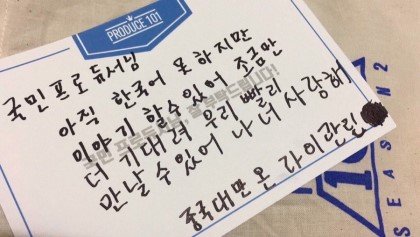 PRODUCE 101
국민 프로듀서님
아직 한국어 못하지만
이야기 할수있어 조금만
국민 프로듀서님, 잘 부탁드립니다!
더 기대려 우리 빨리
만날 수있어 나 너 사랑해
중국대만 온 라이관린
SEASON 2